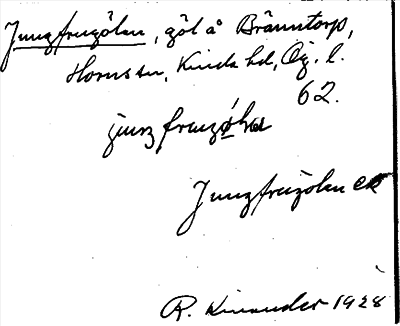 Jungfrugölen, göl å Bränntorp,
Horns sn, Kinda hd, Ög. l.
62.
jungfrugö̀len
Jungfrugölen ek
R. Kinander 1928